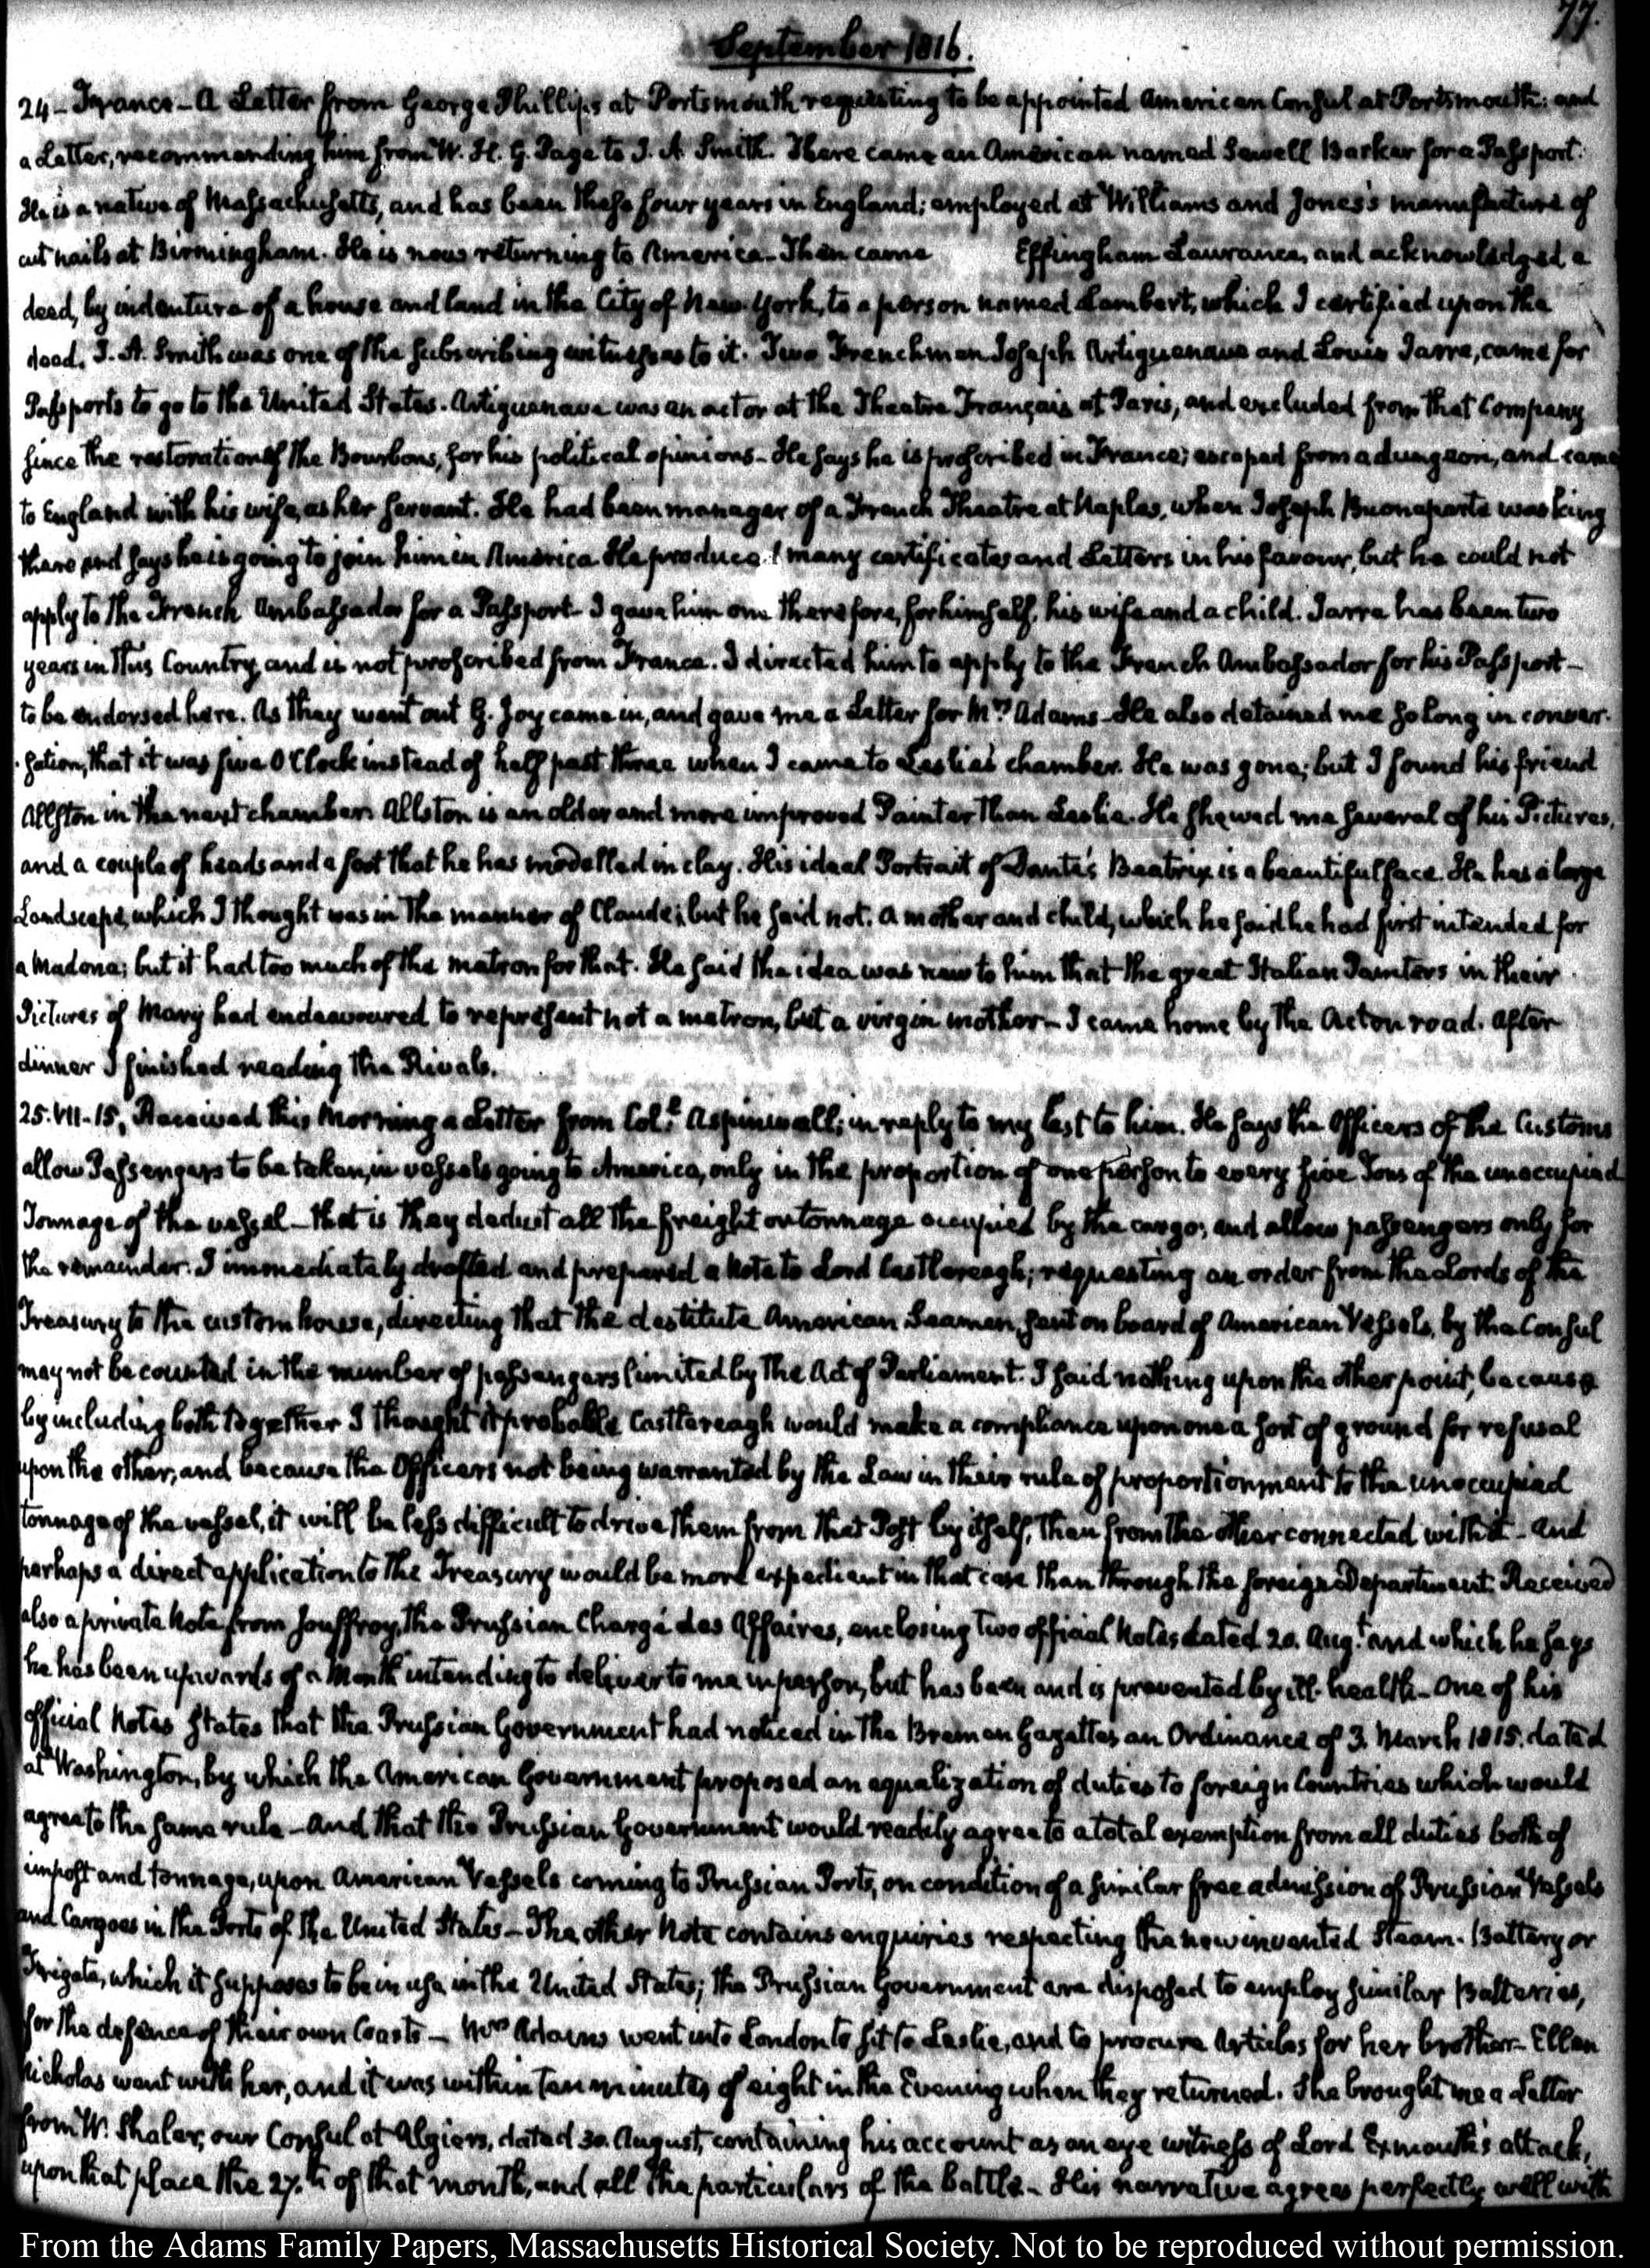 77.
September 1816.
24 - France - A Letter from George Phillips at Portsmouth requesting to be appointed American Consul at Portsmouth: and
a Letter, recommending him from W. H. G. Page to J. A. Smith. There came an American named Sewell Barker for a Passport.
He is a native of Massachusetts, and has been these four years in England; employed at Williams and Jones's manufacture of
cut nails at Birmingham. He is now returning to America - Then came Effingham Lawrance, and acknowledged a
deed, by indenture of a house and land in the City of New-York, to a person named Lambert, which I certified upon the
deed. J. A. Smith was one of the subscribing witnesses to it. Two Frenchmen Joseph Artiguenave and Louis Jarre, came for
Passports to go to the United States. Artiguenave was an actor at the Theatre Français at Paris, and excluded from that Company
since the restoration of the Bourbons, for his political opinions - He says he is proscribed in France; escaped from a dungeon, and came
to England with his wife, as her servant. He had been manager of a French Theatre at Naples, when Joseph Buonaparte was king
there and says he is going to join him in America. He produced many certificates and Letters in his favour, but he could not
apply to the French Ambassador for a Passport - I gave him one therefore, for himself, his wife and a child. Jarre has been two
years in this Country, and is not proscribed from France. I directed him to apply to the French Ambassador for his Passport -
to be endorsed here. As they went out G. Joy came in, and gave me a Letter for Mrs Adams - He also detained me so long in conver-
-sation, that it was five O'Clock instead of half past three when I came to Leslie's chamber. He was gone; but I found his friend
Allston in the next chamber. Allston is an older and more improved Painter than Leslie. He shewed me several of his Pictures,
and a couple of heads and a foot that he has modelled in clay. His ideal Portrait of Dante's Beatrix is a beautiful face. He has a large
Landscape, which I thought was in the manner of Claude; but he said not. A mother and child, which he said he had first intended for
a Madona; but it had too much of the matron for that. He said the idea was new to him that the great Italian Painters in their
Pictures of Mary had endeavoured to represent not a matron, but a virgin mother - I came home by the Acton road. After
dinner I finished reading the Rivals.
25. VII-15. Received this Morning a Letter from Col.l Aspinwall; in reply to my last to him. He says the Officers of the Customs
allow Passengers to be taken, in vessels going to America, only in the proportion of one person to every five Tons of the unoccupied
Tonnage of the vessel - that is they deduct all the freight or tonnage occupied by the cargo, and allow passengers only for
the remainder. I immediately drafted and prepared a Note to Lord Castlereagh; requesting an order from the Lords of the
Treasury to the custom house, directing that the destitute American Seamen, sent on board of American Vessels, by the Consul
may not be counted in the number of passengers limited by the Act of Parliament. I said nothing upon the other point, because
by including both together I thought it probable Castlereagh would make a compliance upon one a sort of ground for refusal
upon the other, and because the Officers not being warranted by the Law in their rule of proportionment to the unoccupied
tonnage of the vessel, it will be less difficult to drive them from that Post by itself, than from the other connected with it - and
perhaps a direct application to the Treasury would be more expedient in that case than through the foreign Department. Received
also a private Note from Jouffroy, the Prussian Chargé des Affaires, enclosing two official Notes dated 20. Aug.t and which he says
he has been upwards of a Month intending to deliver to me in person, but has been and is prevented by ill-health - One of his
official Notes states that the Prussian Government had noticed in the Bremen Gazettes an Ordinance of 3. March 1815. dated
at Washington, by which the American Government proposed an equalization of duties to foreign Countries which would
agree to the same rule - And that the Prussian Government would readily agree to a total exemption from all duties both of
impost and tonnage, upon American Vessels coming to Prussian Ports, on condition of a similar free admission of Prussian Vessels
and Cargoes in the Ports of the United States - The other Note contains enquiries respecting the new invented Steam-Battery or
Frigate, which it supposes to be in use in the United States; the Prussian Government are disposed to employ similar Batteries,
for the defence of their own Coasts - Mrs Adams went into London to sit to Leslie, and to procure Articles for her brother - Ellen
Nicholas went with her, and it was within ten minutes of eight in the Evening when they returned. She brought me a Letter
from W. Shaler, our Consul at Algiers, dated 30. August, containing his account as an eye witness of Lord Exmouth's attack,
upon that place the 27.th of that month, and all the particulars of the battle - His narrative agrees perfectly well with
From the Adams Family Papers, Massachusetts Historical Society. Not to be reproduced without permission.